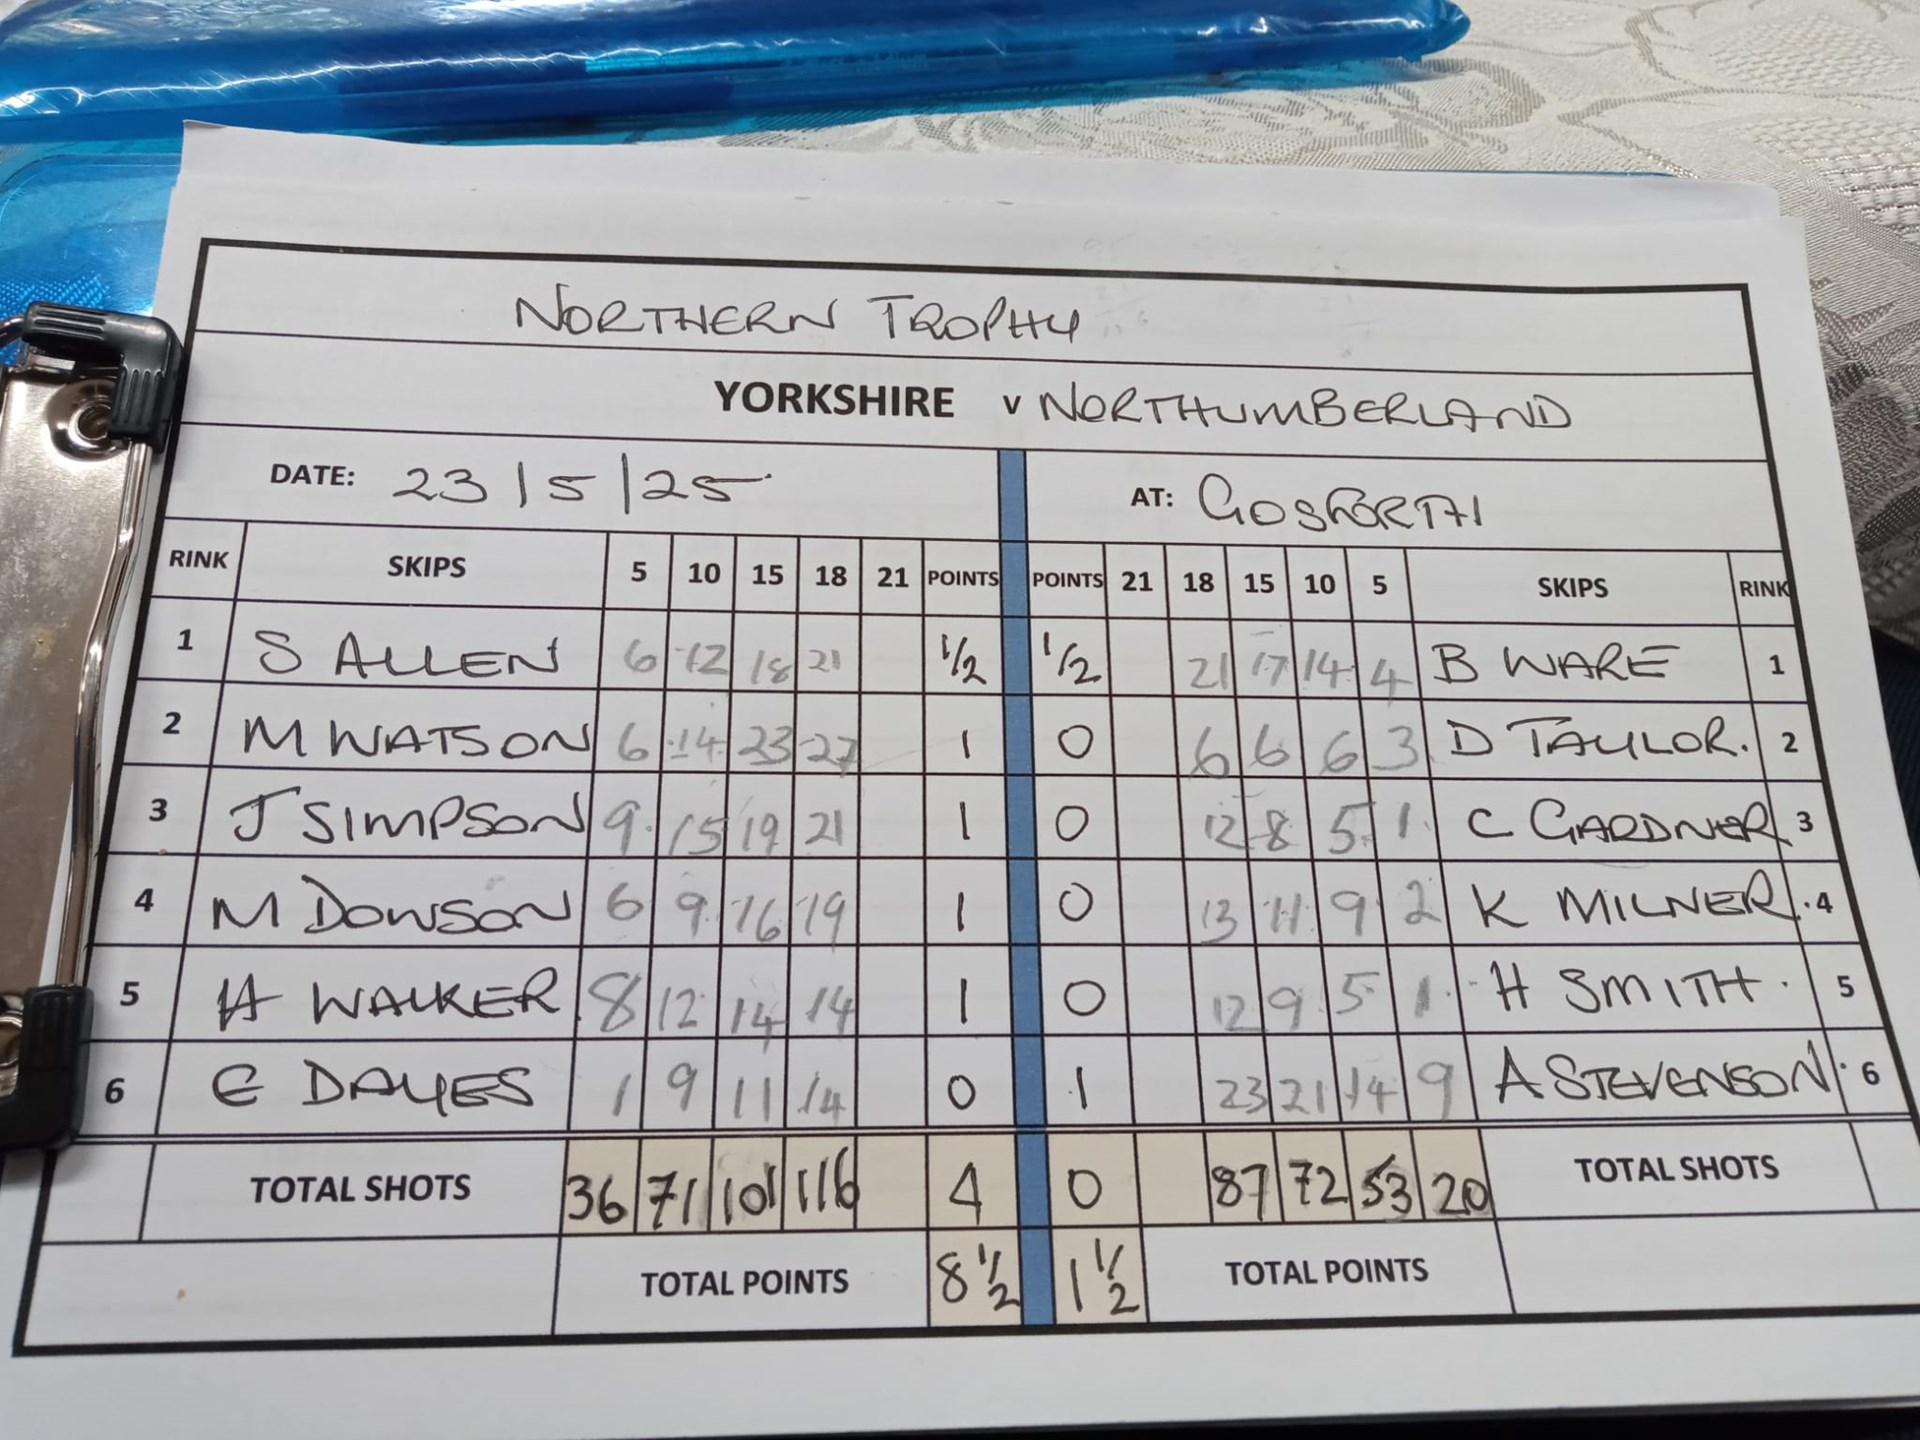 NORTHERN TROPHY
YORKSHIRE v NORTHUMBERLAND
DATE: 23/5/25 AT: GOSFORTH
RINK SKIPS 5 10 15 18 21 POINTS POINTS 21 18 15 10 5 SKIPS RINK
1 S ALLEN 6 12 18 21 1/2 1/2 21 17 14 4 B WARE 1
2 M WATSON 6 14 23 27 1 0 6 6 6 3 D TAYLOR. 2
3 J SIMPSON 9 15 19 21 1 0 12 8 5 1 C GARDNER 3
4 M DOWSON 6 9 16 19 1 0 13 11 9 2 K MILNER 4
5 H WALKER 8 12 14 14 1 0 12 9 5 1 H SMITH 5
6 E DAVIES 1 9 11 14 0 1 23 21 14 9 A STEVENSON 6
TOTAL SHOTS 36 71 101 116 4 0 87 72 53 20 TOTAL SHOTS
TOTAL POINTS 8 1/2 1 1/2 TOTAL POINTS